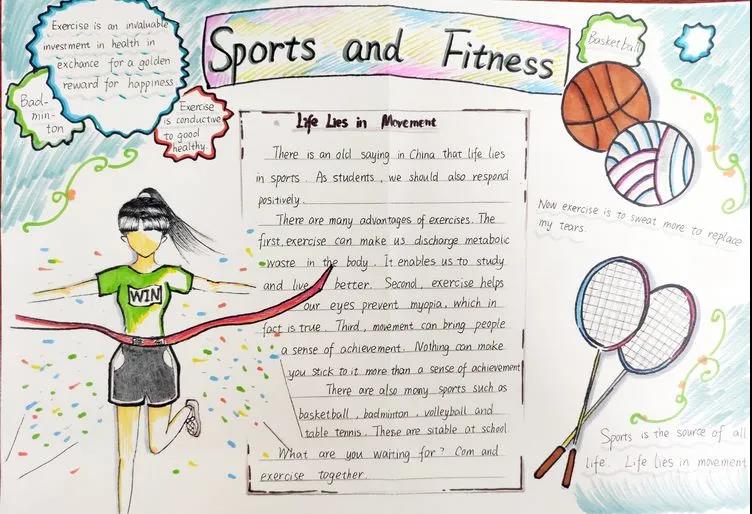 Sports and Fitness
Exercise is an invaluable
investment in health in
exchance for a golden
reward for happiness
Bad-
min-
ton
Exercise
is conductive
to good
healthy.
Basketball
Life Lies in Movement
There is an old saying in China that life lies
in sports. As students, we should also respond
positively.
There are many advantages of exercises. The
first, exercise can make us discharge metabolic
waste in the body. It enables us to study
and live better. Second, exercise helps
our eyes prevent myopia, which in
fact is true. Third, movement can bring people
a sense of achievement. Nothing can make
you stick to it more than a sense of achievement
There are also many sports such as
basketball, badminton, volleyball and
table tennis. These are sitable at school.
What are you waiting for? Com and
exercise together.
WIN
Now exercise is to sweat more to replace
my tears.
Sports is the source of all
life. Life lies in movement